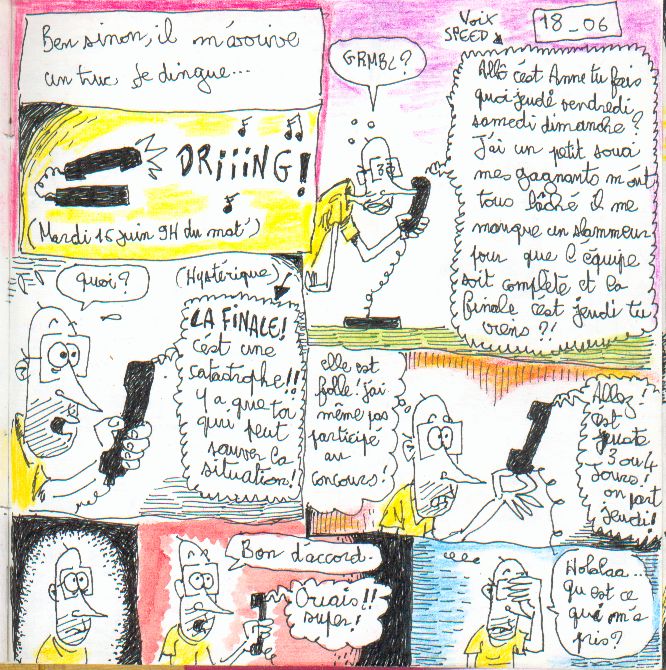 Ben sinon, il m'arrive
un truc de dingue...
DRiiiNG!
(Mardi 16 juin 9H du mat')
18_06
Voix
SPEED
GRMBL?
Allô c'est Anne tu fais
quoi jeudi vendredi
samedi dimanche?
J'ai un petit souci
mes gagnants m'ont
tous lâché il me
manque un slammeur
pour que l'équipe
soit complète et la
finale c'est jeudi tu
viens?!
quoi?
(Hystérique)
LA FINALE!
c'est une
catastrophe!!
y a que toi
qui peut
sauver la
situation!
elle est
folle! j'ai
même pas
participé
au
concours!
Allez!
est
juste
3 ou 4
jours!
on part
jeudi!
Bon d'accord.
Ouais!!
super!
Holalaa...
qu'est ce
qui m'a
pris?